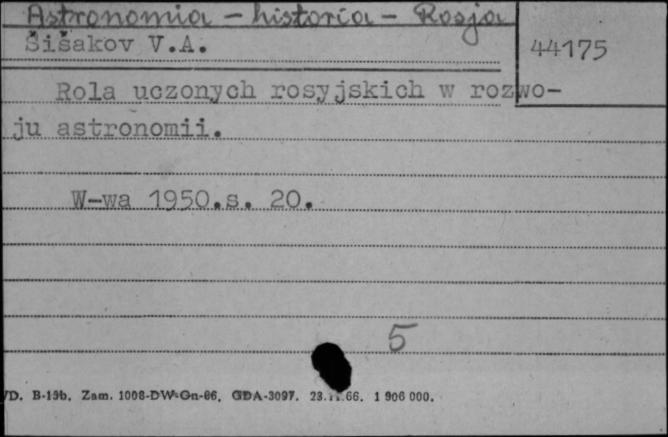 Astronomia - historia - Rosja
Šišakov V.A.
44175
Rola uczonych rosyjskich w rozwo-
ju astronomii.
W-wa 1950.s. 20.
5
B-15b. Zam. 1008-DW-Gn-66. GDA-3097. 23.11.66. 1 906 000.